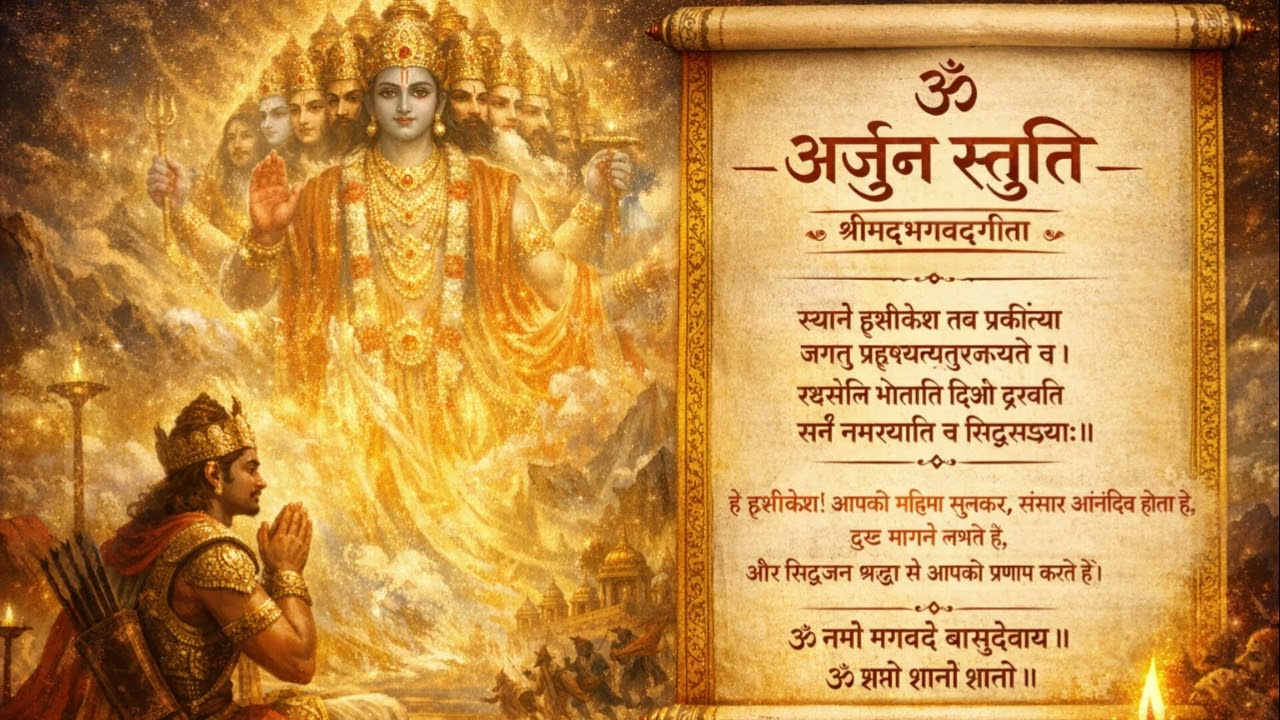 ॐ
अर्जुन स्तुति
श्रीमदभगवदगीता
स्याने हृसीकेश तव प्रकींत्या
जगतु प्रहृष्यत्यतुरनज्यते व।
रथसेलि भोताति दिओ द्रवति
सर्नं नमरयाति व सिद्वसङयाः॥
हे हृशीकेश! आपको महिमा सुलकर, संसार आंनंदिव होता हे,
दुख्ट मागने लभते हैं,
और सिद्वजन श्रद्धा से आपको प्रणाप करते हैं।
ॐ नमो मगवदे बासुदेवाय॥
ॐ शप्तो शानो शातो॥